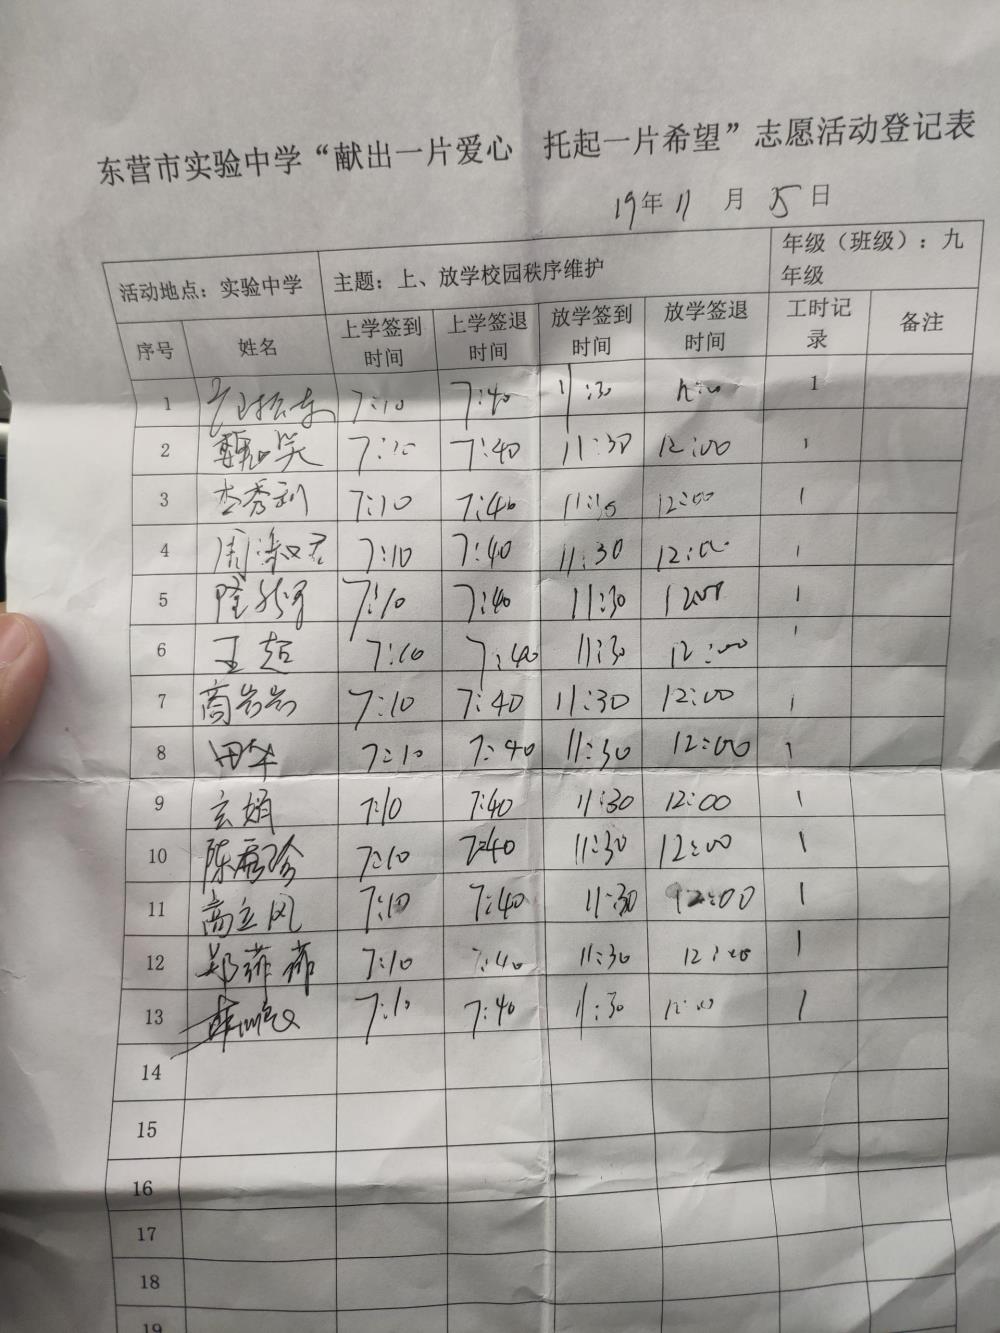 东营市实验中学“献出一片爱心 托起一片希望”志愿活动登记表
19年11月15日
活动地点：实验中学 主题：上、放学校园秩序维护 年级（班级）：九年级
序号 姓名 上学签到时间 上学签退时间 放学签到时间 放学签退时间 工时记录 备注
1 7:10 7:40 11:30 12:00 1
2 甄如笑 7:10 7:40 11:30 12:00 1
3 李秀利 7:10 7:40 12:00 1
4 周淑君 7:10 7:40 11:30 12:00 1
5 7:10 7:40 11:30 1200 1
6 王超 7:10 7:40 11:30 12:00 1
7 商岩岩 7:10 7:40 11:30 12:00 1
8 田华 7:10 7:40 11:30 12:00 1
9 玄娟 7:10 7:40 11:30 12:00 1
10 陈秀珍 7:10 7:40 11:30 12:00 1
11 高立风 7:10 7:40 11:30 12:00 1
12 郑菲菲 7:10 7:40 11:30 12:00 1
13 7:10 7:40 11:30 12:00 1
14
15
16
17
18
19